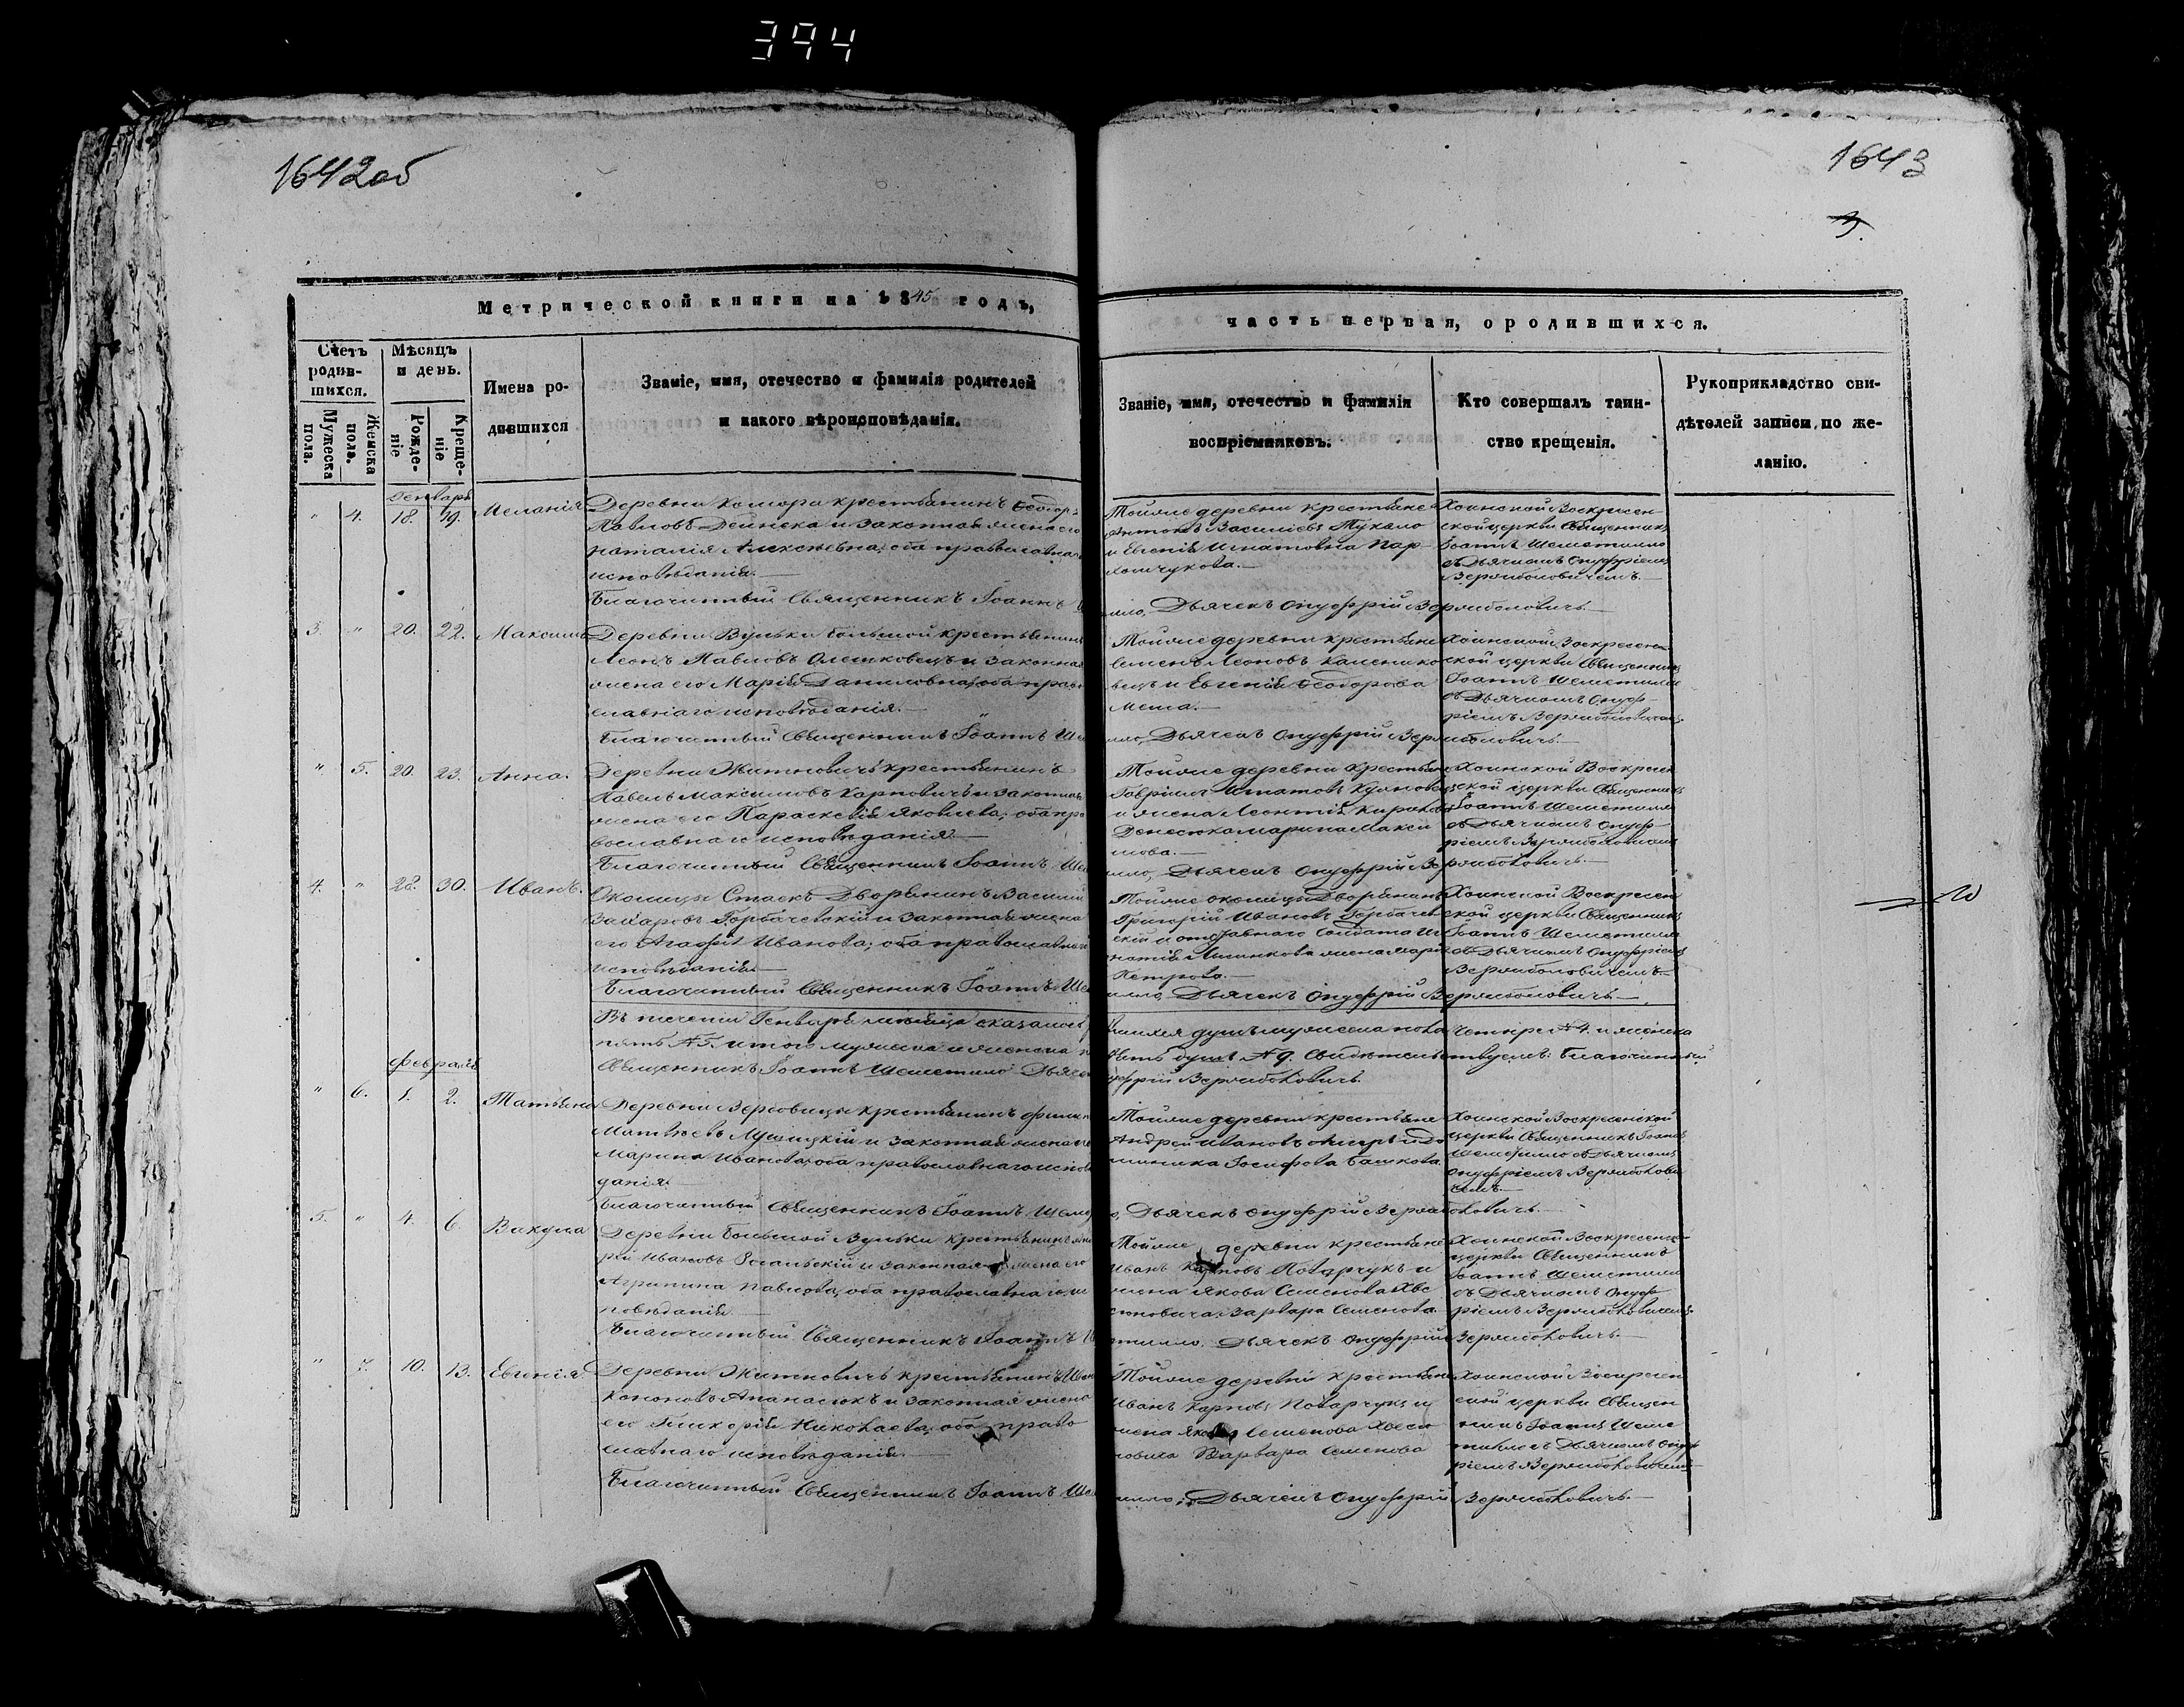 394
1642об
1643
3.
Метрической книги на 1845 годъ,
часть первая, о родившихся.
Счетъ родив-шихся.
Мужеска пола.
Женска пола.
Мѣсяцъ и день.
Рожде-ніе
Креще-ніе
Имена ро-
дившихся
Званіе, имя, отечество и фамилія родителей
и какого вѣроисповѣданія.
Званіе, имя, отечество и фамилія
воспріемниковъ.
Кто совершалъ таин-
ство крещенія.
Рукоприкладство сви-
дѣтелей записи по же-
ланію.
Генварь
" 4. 18. 19. Меланія
Деревни Комора крестьянинъ Ѳеодоръ
Павловъ Дейнека и законная жена его
Наталія Алексѣевна, оба православнаго
исповѣданія.
Тойже деревни крестьяне
Антонъ Василіевъ Тукало
и Евгенія Игнатовна Пар-
хомчукова.
Хоинской Воскресен
ской церкви Священникъ
Іоаннъ Шеметилло
съ Дьячкомъ Онуфріемъ
Вержбиловичемъ.
Благочинный Священникъ Іоаннъ Ше
илло, Дьячекъ Онуфрій Вержболовичъ.
3. " 20. 22. Максимъ
Деревни Вульки большой крестьянинъ
Леонъ Павловъ Олешковецъ и законная
жена его Марія Даниловна, оба право
славнаго исповѣданія.
Тойже деревни крестьяне
Семенъ Леоновъ
вецъ и Евгенія Ѳеодорова
Хоинской Воскресен
ской церкви Священникъ
Іоаннъ Шеметилло
съ Дьячкомъ Онуф-
ріемъ Вержболовичемъ.
Благочинный Священникъ Іоаннъ Ше
илло, Дьячекъ Онуфрій Вержболовичъ.
" 5. 20. 23. Анна.
Деревни Житновичъ крестьянинъ
Павелъ Максимовъ Карповичъ и законная
жена его Параскевія Яковлева, оба пра
вославнаго исповѣданія.
Тойже деревни крестьяне
Гавріилъ Игнатовъ
и жена Леонтія
Марина Макси
мова.
Хоинской Воскресен
ской церкви Священникъ
Іоаннъ Шеметилло
съ Дьячкомъ Онуф-
ріемъ Вержболовичемъ
Благочинный Священникъ Іоаннъ Ше
илло, Дьячекъ Онуфрій Вержболовичъ.
4. " 28. 30. Иванъ.
Околицы Стаекъ Дворянинъ Василій
Захаровъ Горбачевскій и законная жена
его Агафія Иванова, оба православнаго
исповѣданія.
Тойже околицы Дворянинъ
Григорій Ивановъ Горбачев
скій и отставнаго Солдата Иг
натія жена Марія
Петрова.
Хоинской Воскресен
ской церкви Священникъ
Іоаннъ Шеметилло
съ Дьячкомъ Онуфріемъ
Вержболовичемъ.
Благочинный Священникъ Іоаннъ Ше
илло, Дьячекъ Онуфрій Вержболовичъ.
Въ теченіи Генваря мѣсяца
душъ мужеска пола четыре №4. и женска
пять №5. итого мужеска и женска п
вять душъ №9. Свидѣтельствуемъ: Благочинный
Священникъ Іоаннъ Шеметилло Дьяче
уфрій Вержболовичъ.
Февраль
" 6. 1. 2. Татьяна
Деревни крестьянинъ
Матвѣевъ и законная жена его
Марина Иванова, оба православнаго исповѣ
данія.
Тойже деревни крестьяне
Андрей Ивановъ
Іосифова Башкова.
Хоинской Воскресенской
церкви Священникъ Іоаннъ
Шеметилло съ Дьячкомъ
Онуфріемъ Вержболови
чемъ.
Благочинный Священникъ Іоаннъ Шемет
о, Дьячекъ Онуфрій Вержболовичъ.
5. " 4. 6. Вакула
Деревни Большой Вульки крестьянинъ
Ивановъ и законная жена его
Агрипина Павлова, оба православнаго ис
повѣданія.
Тойже деревни крестьяне
Иванъ Карповъ Поварчукъ и
жена Якова Семенова Хве
сюковича Варвара Семенова
Хоинской Воскресенс
церкви Священникъ
Іоаннъ Шеметилло
съ Дьячкомъ Онуф-
ріемъ Вержболовичемъ.
Благочинный Священникъ Іоаннъ Ше
тилло, Дьячекъ Онуфрій Вержболовичъ.
" 7. 10. 13. Евгенія
Деревни Житновичъ крестьянинъ Иванъ
Кононовъ Апанасюкъ и законная жена
его Гликерія Николаева, оба право
славнаго исповѣданія.
Тойже деревни крестьяне
Иванъ Карповъ Поварчукъ и
жена Якова Семенова Хвесю
ковича Варвара Семенова
Хоинской Воскресен
ской церкви Священ
никъ Іоаннъ Шеме
тилло съ Дьячкомъ Онуф
ріемъ Вержболовичемъ
Благочинный Священникъ Іоаннъ Ше
илло, Дьячекъ Онуфрій Вержболовичъ.